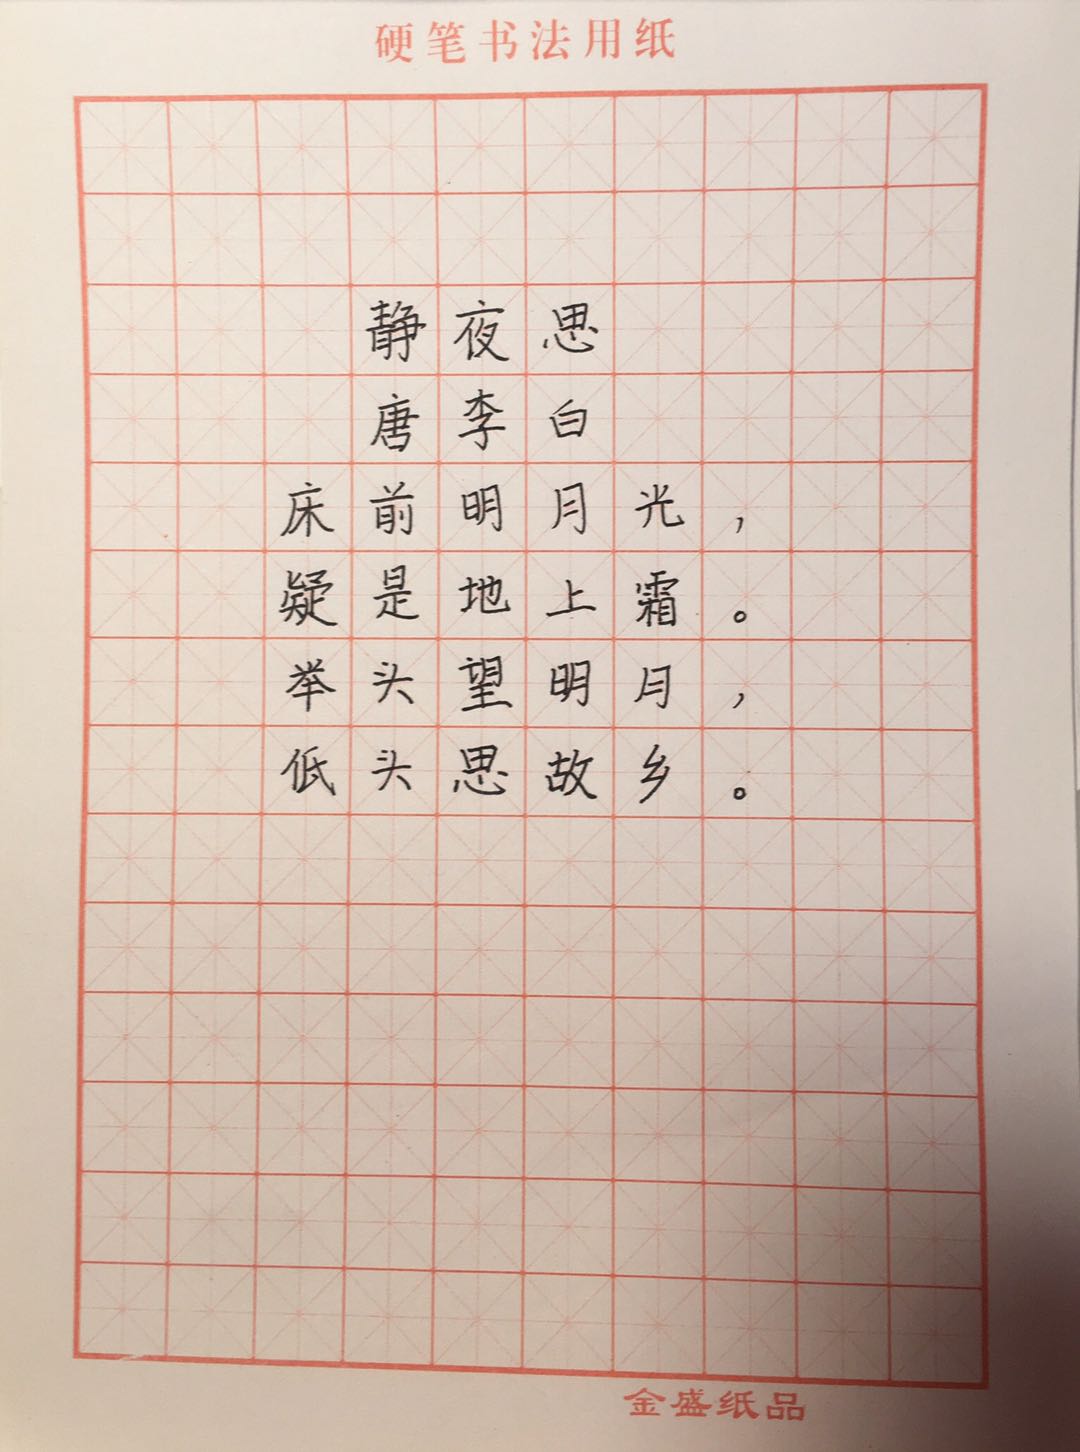 硬笔书法用纸
静夜思
唐李白
床前明月光，
疑是地上霜。
举头望明月，
低头思故乡。
金盛纸品